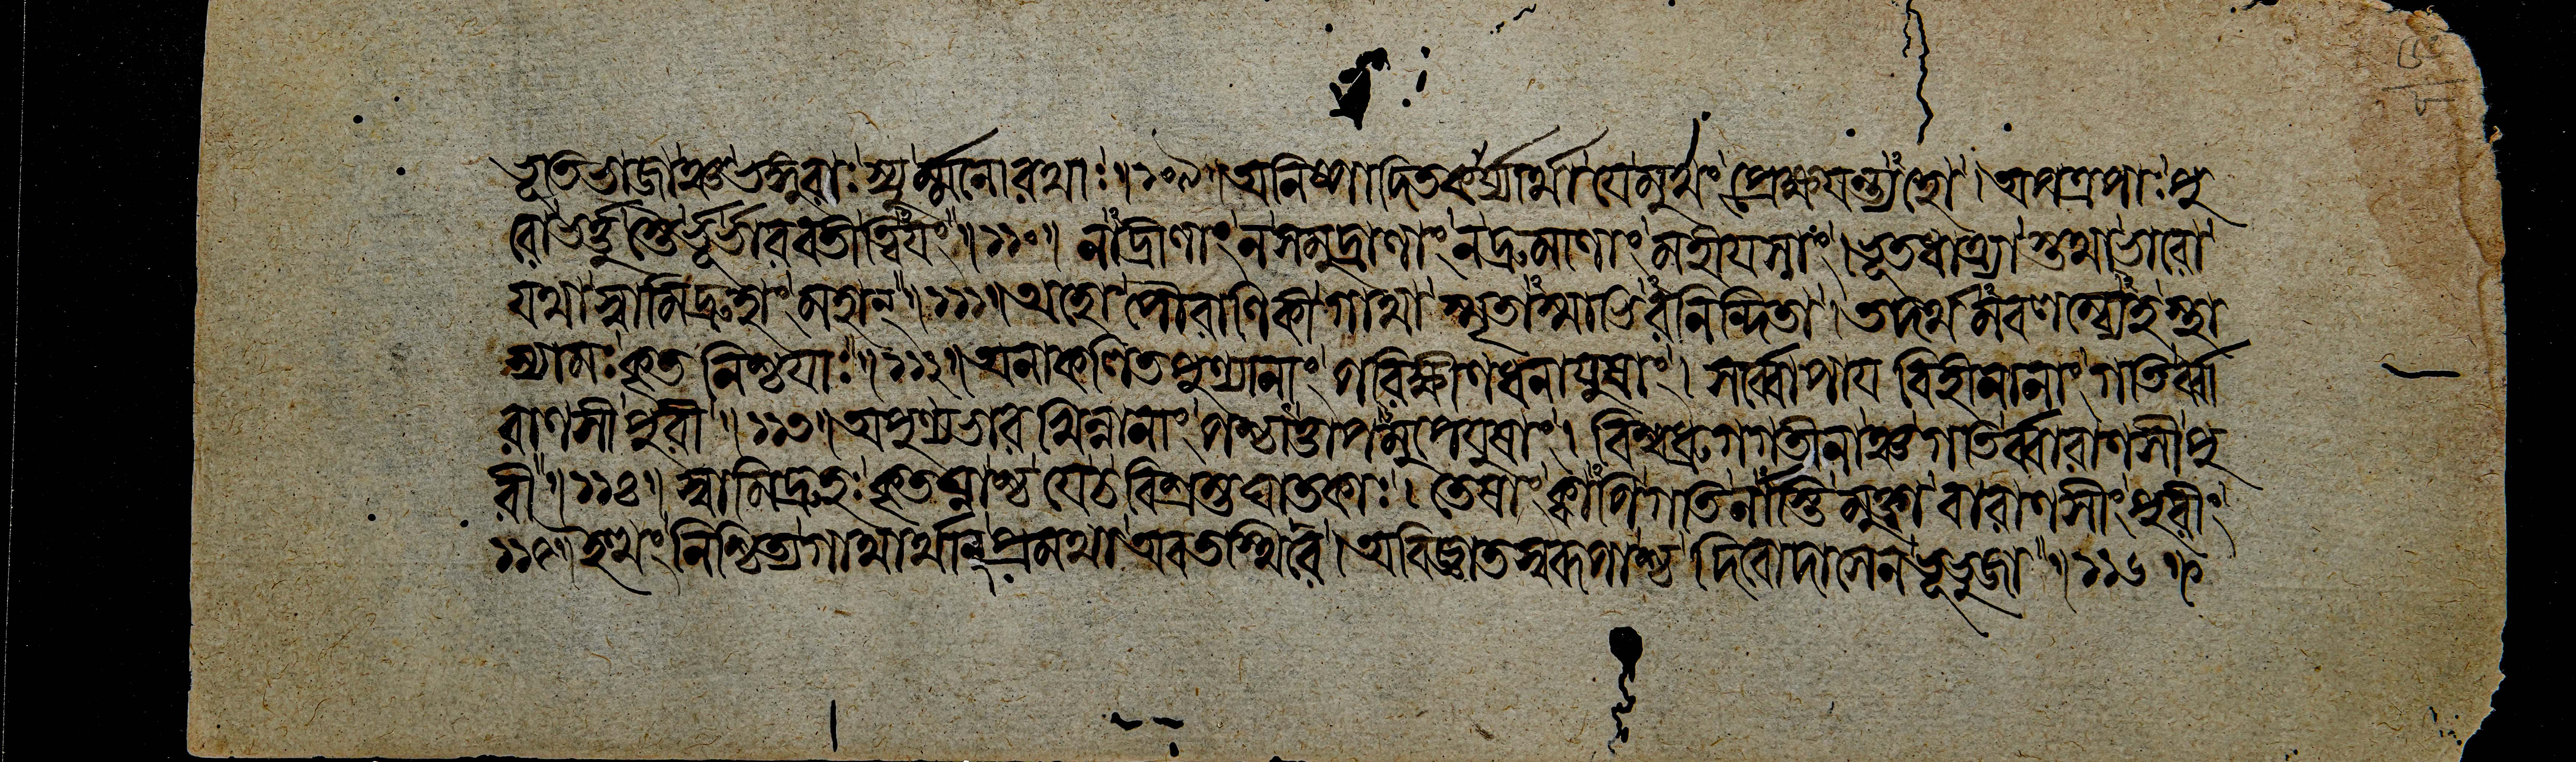 ভূতিভাজাঞ্চভঙ্গুরাঃ স্যুর্ম্মনোরথাঃ ॥ ১০৯ ॥ অনিষ্পাদিতকর্ত্তব্যার্থা যে মুখং প্রেক্ষয়ন্ত্যহো । অপত্রপাঃ পু
রো ভর্ত্তুস্তৈর্ভূর্ভারবতীত্বিয়ং ॥ ১১০ ॥ নাদ্রীণাং ন সমুদ্রাণাং ন দ্রুমাণাং মহীয়সাং । ভূতধাত্র্যাস্তথা ভারো
যথা স্বামিদ্রুহাং মহান্ ॥ ১১১ ॥ অহো পৌরাণিকী গাথা স্মৃতাস্মাভিরনিন্দিতা । তদর্থমবলম্ব্যেহ স্থা
স্যামঃ কৃতনিশ্চয়াঃ ॥ ১১২ ॥ অনাকলিতপুণ্যানাং পরিক্ষীণধনায়ুষাং । সর্ব্বোপায়বিহীনানাং গতির্ব্বা
রাণসী পুরী ॥ ১১৩ ॥ অপুণ্যভারখিন্নানাং পশ্চাত্তাপমুপেয়ুষাং । বিশ্বধ্রুগগতীনাঞ্চ গতির্ব্বারাণসী পু
রী ॥ ১১৪ ॥ স্বামিদ্রুহঃ কৃতঘ্নাশ্চ যে চ বিশ্বস্তঘাতকাঃ । তেষাং ক্বাপি গতির্নাস্তি মুক্ত্বা বারাণসীং পুরীং
১১৫ ॥ ইত্থং নিশ্চিত্য গাথার্থান্ প্রমথা অবতস্থিরে । অবিজ্ঞাতস্বরূপাশ্চ দিবোদাসেন ভূভুজা ॥ ১১৬ ॥